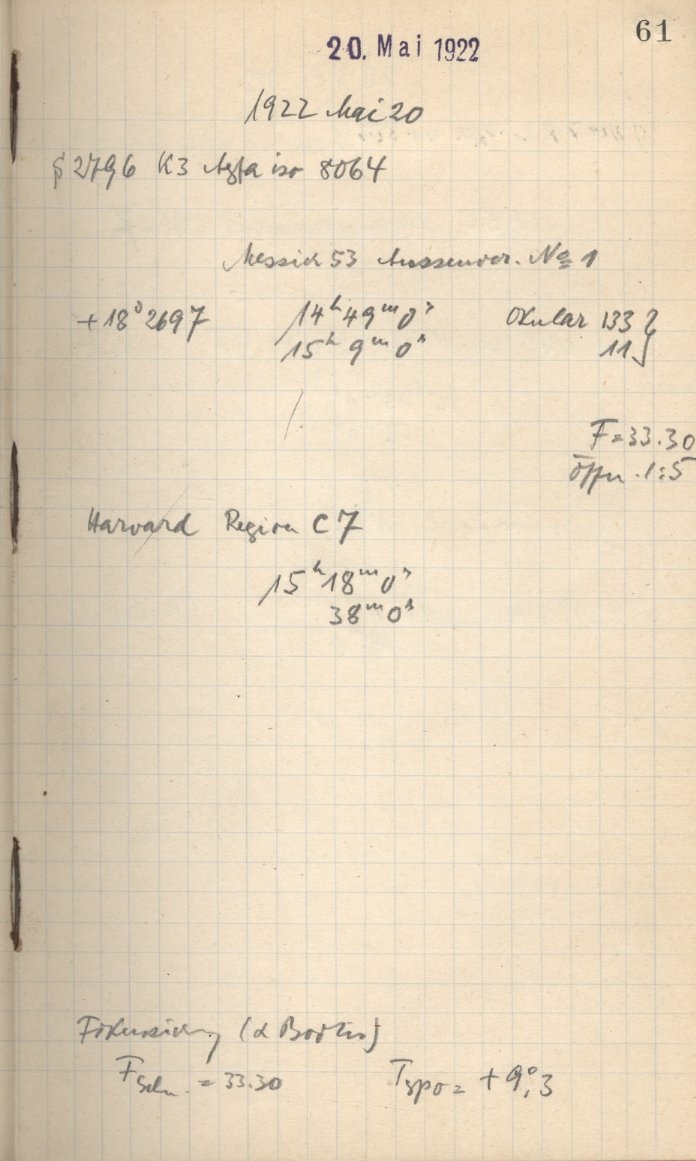 61
20. Mai 1922
1922 Mai 20
§ 2796 K3 Agfa iso 8064
Messier 53 Aussenver. No 1
+18° 2697 14h 49m 0s Okular 133 }
15h 9m 0s 11 }
F = 33.30
Öffn. 1:5
Harvard Region C 7
15h 18m 0s
38m 0s
Fokussierung (α Bootis)
F = 33.30 = +9°,3